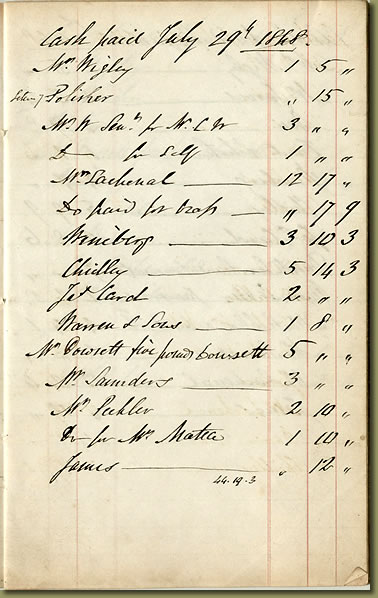 Cash paid July 29th 1848.
Mr Wigley 1 5 "
Polisher " 15 "
Mr W Senr for W. C W 3 " "
Do for Self 1 " "
Mr Lachenal 12 17 "
Do paid for brass " 17 9
3 10 3
Chidley 5 14 3
Jet Card 2 " "
Warren & Sons 1 8 "
Mr Dowsett five pounds Dowsett 5 " "
Mr Saunders 3 " "
Mr 2 10 "
Do for Mr 1 10 "
James " 12 "
44.19.3